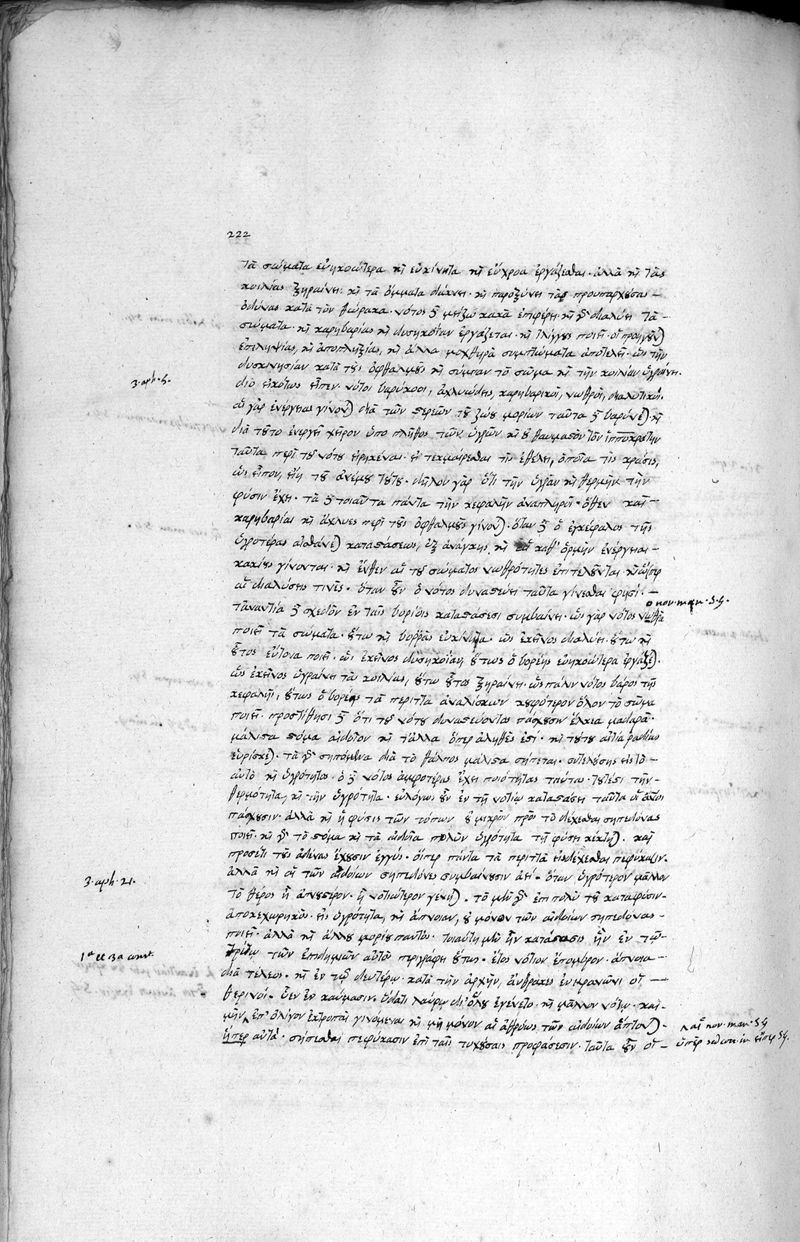 222
τὰ σώματα εὐηκοώτερα καὶ εὐκίνητα καὶ εὔχροα ἐργάζεσθαι. ἀλλὰ καὶ τὰς
κοιλίας ξηραίνει. καὶ τὰ ὄμματα δάκνει. καὶ παροξύνει τὰς προυπαρχούσας
ὀδύνας κατὰ τὸν θώρακα. νότος δὲ μείζω κακὰ ἐπιφέρει. καὶ γὰρ διαλύει τὰ
σώματα. καὶ καρηβαρίας καὶ δυσηκοΐαν ἐργάζεται. καὶ ἰλίγγους ποιεῖ.
ἐπιληψίας, καὶ ἀποπληξίας, καὶ ἄλλα μοχθηρὰ συμπτώματα ἀποτελεῖ. καὶ τὴν
δυσκινησίαν κατὰ τοὺς ὀφθαλμοὺς καὶ σύμπαν τὸ σῶμα καὶ τὴν κοιλίαν ὑγραίνει.
3. aph. 5.
διὸ εἰκότως εἶπεν νότοι βαρύκοοι, ἀχλυώδεις, καρηβαρικοί, νωθροί, διαλυτικοί.
αἱ γὰρ ἐνέργειαι γίνονται διὰ τῶν στερεῶν τοῦ ζώου μορίων ταῦτα δὲ βαρύνεται καὶ
διὰ τοῦτο ἐνεργεῖ χεῖρον ὑπὸ πλήθους τῶν ὑγρῶν καὶ οὐ θαυμαστὸν τὸν ἱπποκράτην
ταῦτα περὶ τοῦ νότου εἰρηκέναι. εἰ τεκμαίρεσθαι τις ἐθέλει, ὁποία τις κρᾶσις,
ὡς εἶπον, εἴη τοῦ ἀνέμου τούτου. δῆλον γὰρ ὅτι τὴν ὑγρὰν καὶ θερμὴν τὴν
φύσιν ἔχει. τὰ δὲ τοιαῦτα πάντα τὴν κεφαλὴν ἀναπληροῖ. ὅθεν καὶ
καρηβαρίαι καὶ ἀχλύες περὶ τοὺς ὀφθαλμοὺς γίνονται. ὅταν δὲ ὁ ἐγκέφαλος τῆς
ὑγροτέρας αἰσθάνεται καταστάσεως, ἐξ ἀνάγκης καὶ αἱ καθ' ὁρμὴν ἐνέργειαι
κακῶς γίνονται. καὶ ἔνθεν αἱ τοῦ σώματος νωθρότητες ἐπιτελοῦνται
αἱ διαλύσεις τινές. ὅταν οὖν ὁ νότος δυναστεύῃ ταῦτα γίνεσθαι φησί.
τἀναντία δὲ σχεδὸν ἐν ταῖς βορείοις καταστάσεσι συμβαίνει. ὡς γὰρ νότος νωθρὰ
ο nov. man. 54.
ποιεῖ τὰ σώματα. οὕτω καὶ βορρᾶς εὐκίνητα. ὡς ἐκεῖνος διαλύει. οὕτω καὶ
οὗτος εὔτονα ποιεῖ. ὡς ἐκεῖνος δυσηκοΐαν, οὕτως ὁ βορέης εὐηκοώτερα ἐργάζεται.
ὡς ἐκεῖνος ὑγραίνει τὰς κοιλίας, οὕτω οὗτος ξηραίνει. ὡς πάλιν νότος βάρος τῆς
κεφαλῆς, οὕτως ὁ βορέης τὰ περιττὰ ἀναλίσκων κουφότερον ὅλον τὸ σῶμα
ποιεῖ. προστίθησι δὲ ὅτι τοῦ νότου δυναστεύοντος πάσχουσιν ἕλκεα μαδαρὰ.
μάλιστα στόμα αἰδοῖον καὶ τἆλλα ὅπερ ἀληθές ἐστι. καὶ τούτου αἰτία ῥᾳδίως
εὑρίσκεται. τὰ γὰρ σηπόμενα διὰ τὸ θάλπος μάλιστα σήπεται. συντελούσης εἰς τὸ
αὐτὸ καὶ ὑγρότητος. ὁ δὲ νότος ἀμφοτέρας ἔχει ποιότητας ταύτας. τουτέστι τὴν
θερμότητα, καὶ τὴν ὑγρότητα. εὐλόγως οὖν ἐν τῇ νοτίῳ καταστάσει ταῦτα
πάσχουσιν. ἀλλὰ καὶ ἡ φύσις τῶν τόπων οὐ μικρὸν πρὸς τὸ δέχεσθαι σηπεδόνας
ποιεῖ. καὶ γὰρ τὸ στόμα καὶ τὰ αἰδοῖα πολλὴν ὑγρότητα τῇ φύσει κέκτηται. καὶ
προσέτι τοὺς ἀδένας ἔχουσιν ἐγγύς. οἵπερ πάντα τὰ περιττὰ εἰσδέχεσθαι πεφύκασιν.
3. aph. 21.
ἀλλὰ καὶ αἱ τῶν αἰδοίων σηπεδόνες συμβαίνουσιν ἀεί. ὅταν ὑγρότερον μᾶλλον
τὸ θέρος ἢ ἄπνουστερον. ἢ νοτιώτερον γένηται. τὸ μὲν γὰρ ἐπιπολὺ τοῦ καταφύσιν
ἀποκεχωρηκὸς εἰς ὑγρότητα, καὶ ἄπνοιαν, οὐ μόνον τῶν αἰδοίων σηπεδόνας
ποιεῖ. ἀλλὰ καὶ ἄλλου μορίου παντός. τοιαύτη μὲν οὖν κατάστασις ἦν ἐν τῷ
1ª et 3ª const.
τρίτῳ τῶν ἐπιδημιῶν αὐτὸς περιγράφει οὕτως. ἔτος νότιον ἔπομβρον. ἄπνοια
διὰ τέλεος. καὶ ἐν τῷ δευτέρῳ. κατὰ τὴν ἀρχὴν, ἄνθρακες ἐν κρανῶνι οἱ
θερινοί. ὗεν ἐν καύμασιν. ὕδατι λαύρῳ δι' ὅλου ἐγένετο. καὶ μᾶλλον νότῳ. καὶ
μὴν ἐπ' ὀλίγον ἐκτροπαὶ γινόμεναι καὶ μὴ μόνον αἱ ἀθρόως τῶν αἰδοίων ἅπτονται.
nov. man. 54
ὑπὲρ αὐτὰ. σήπεσθαι πεφύκασιν ἐπὶ ταῖς τυχούσαις προφάσεσιν. ταῦτα οὖν οἱ